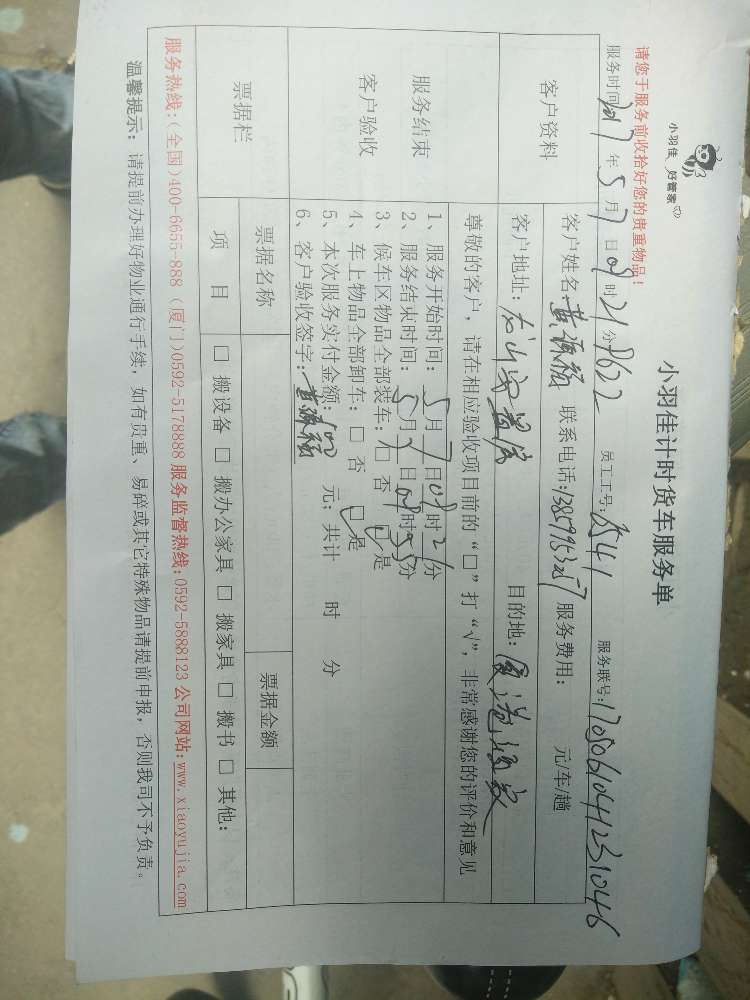 小羽佳 好管家
小羽佳计时货车服务单
请您于服务前收拾好您的贵重物品！
服务时间 2017 年 5 月 7 日 08 时 21 分 员工工号: 服务联号: 1705061041231046
客户资料
客户姓名: 黄 联系电话: 13859953257 服务费用: 元/车/趟
客户地址: 目的地:
尊敬的客户，请在相应验收项目前的“□”打“√”，非常感谢您的评价和意见
服务结束
客户验收
1、服务开始时间: 5月7日08时21分
2、服务结束时间: 5月7日08时55分
3、候车区物品全部装车: □ 否 ☑ 是
4、车上物品全部卸车: □ 否 ☑ 是
5、本次服务实付金额: 100 元; 共计 时 分
6、客户验收签字: 黄
票据栏
票据名称 票据金额
项 目 □ 搬设备 □ 搬办公家具 □ 搬家具 □ 搬书 □ 其他:
服务热线:(全国)400-6655-888 (厦门)0592-5178888 服务监督热线:0592-5888123 公司网站:www.xiaoyujia.com
温馨提示: 请提前办理好物业通行手续, 如有贵重、易碎或其它特殊物品请提前申报, 否则我司不予负责。